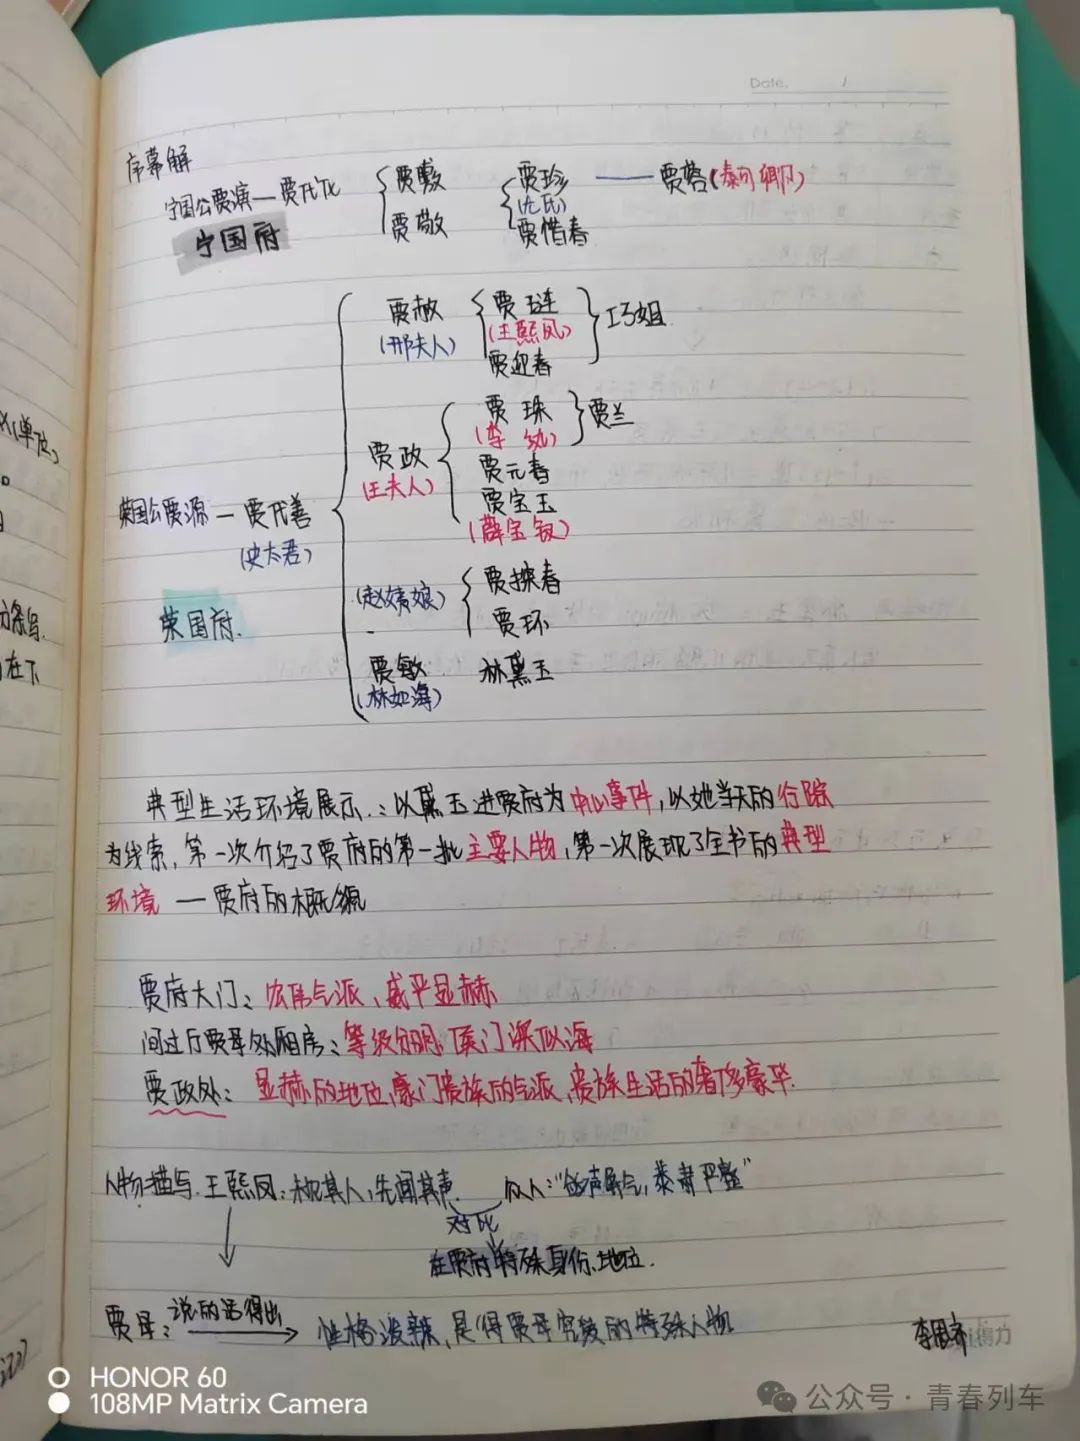 Date. /
序幕解
宁国公贾演—贾代化 贾敷 贾珍——贾蓉(秦可卿)
贾敬 (尤氏)
贾惜春
宁国府
贾赦 贾琏 巧姐
(邢夫人) (王熙凤)
贾迎春
贾珠 贾兰
贾政 (李纨)
(王夫人) 贾元春
荣国公贾源—贾代善 贾宝玉
(史太君) (薛宝钗)
(赵姨娘) 贾探春
荣国府. 贾环
贾敏 林黛玉
(林如海)
典型生活环境展示:以黛玉进贾府为中心事件,以她当天的行踪
为线索,第一次介绍了贾府的第一批主要人物,第一次展现了全书的典型
环境—贾府的概貌
贾府大门:宏伟气派、威严显赫
间过厅贾母处厢房:等级分明,侯门深似海
贾政处:显赫的地位,豪门贵族的气派,贵族生活的奢侈豪华.
人物描写.王熙凤:未见其人,先闻其声. 众人:“敛声屏气,恭肃严整”
对比
在贾府特殊身份、地位.
贾母:说的话得出 性格泼辣,是得贾母宠爱的特殊人物
得力
(单位)
分条写.
在下
HONOR 60
108MP Matrix Camera
公众号·青春列车